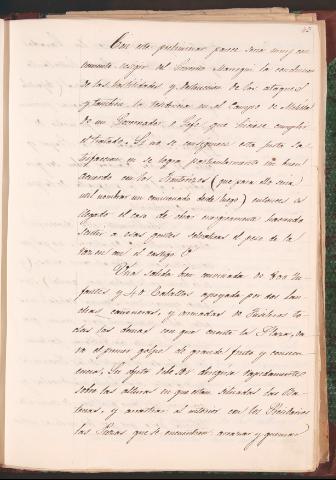 Con este preliminar parece seria muy con
veniente exigir del Govierno Marroqui la conclusion
de las hostilidades y destruccion de los ataques
y tambien la residencia en el Campo de Melilla
de un Governador o Gefe que hiciese cumplir
el tratado. Si no se consiguiese esta justa sa
tisfaccion ni se logra particularmente un buen
acuerdo con los fronterizos (que para ello seria
util nombrar un comisionado desde luego) entonces es
llegado el caso de obrar energicamente haciendo
sentir a esas gentes el peso de la
razon en el castigo
Una salida bien convinada de 800 In
fantes y 40 Caballos apoyada por dos lan
chas cañoneras, y armadas de fusileros to
das las demas con que cuenta la Plaza, se
ra el primer golpe de grande fruto y consecu
encia; Su objeto debe ser dirigirse rapidamente
sobre las alturas en que estan situadas las Ba
terias, y arrastrar al interior con los Presidarios
las Piezas que se encuentren: arrasar y quemar